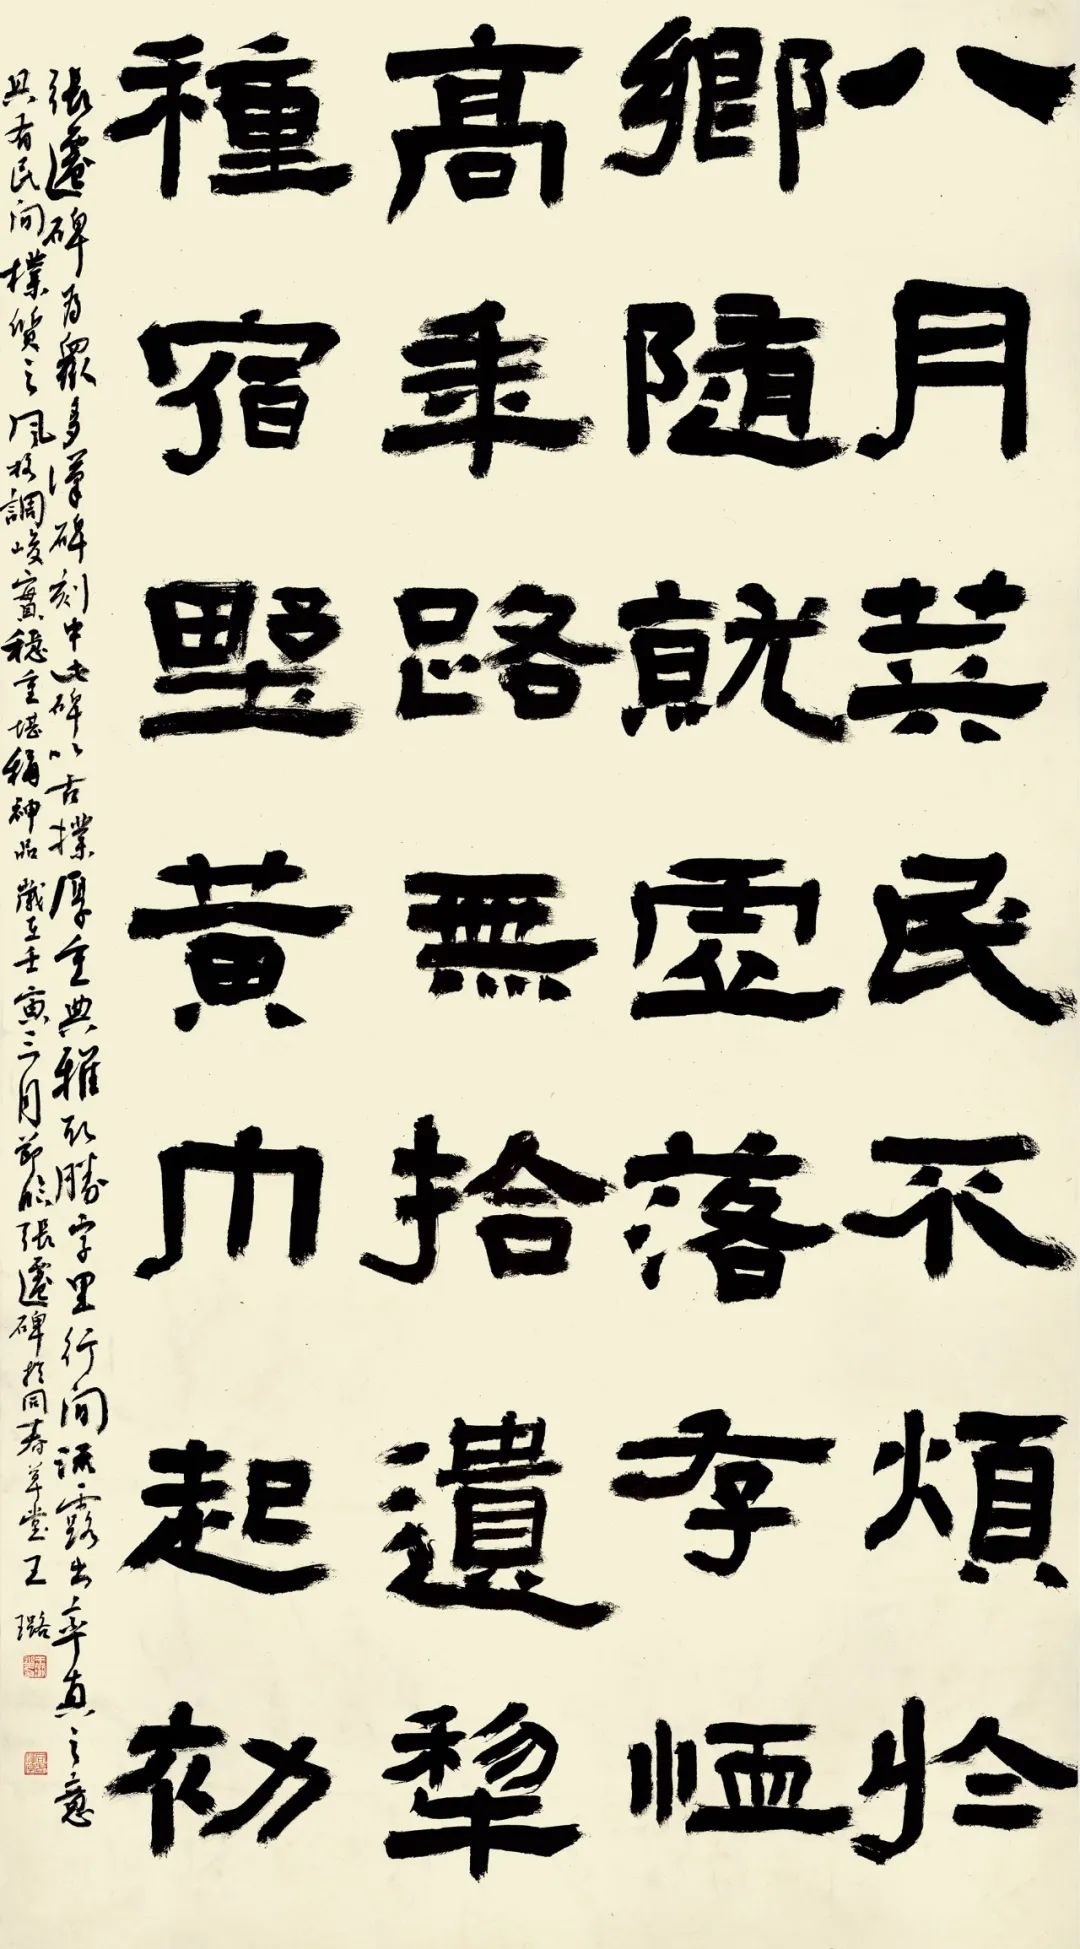 八月筭民不煩於
鄉隨就虛落存恤
高年路無拾遺犁
種宿野黃巾起初
張遷碑為眾多漢碑刻中此碑以古樸厚重典雅取勝字里行間流露出率真之意
具有民間樸質之風格調峻實穩重堪稱神品歲在壬寅三月節臨張遷碑於同春草堂王璐